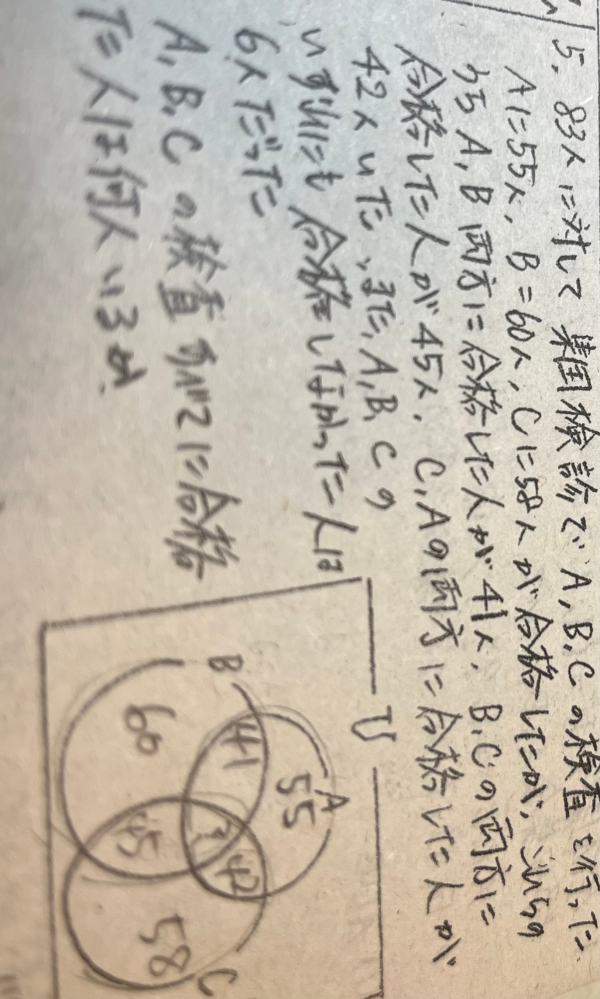 5. 83人に対して集団検診でA,B,Cの検査を行った.
Aに55人, B=60人, Cに58人が合格したが, これらの
うちA,B両方に合格した人が41人, B,Cの両方に
合格した人が45人, C,Aの両方に合格した人が
42人いた, また, A,B,Cの
いずれにも合格しなかった人は
6人だった
A,B,Cの検査すべてに合格
した人は何人いるか.
U
A
55
B
41
42
60
45
58
C